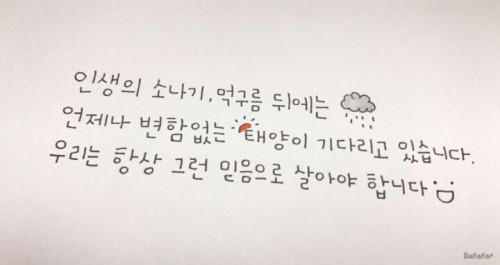 인생의 소나기, 먹구름 뒤에는
언제나 변함없는 태양이 기다리고 있습니다.
우리는 항상 그런 믿음으로 살아야 합니다 :D